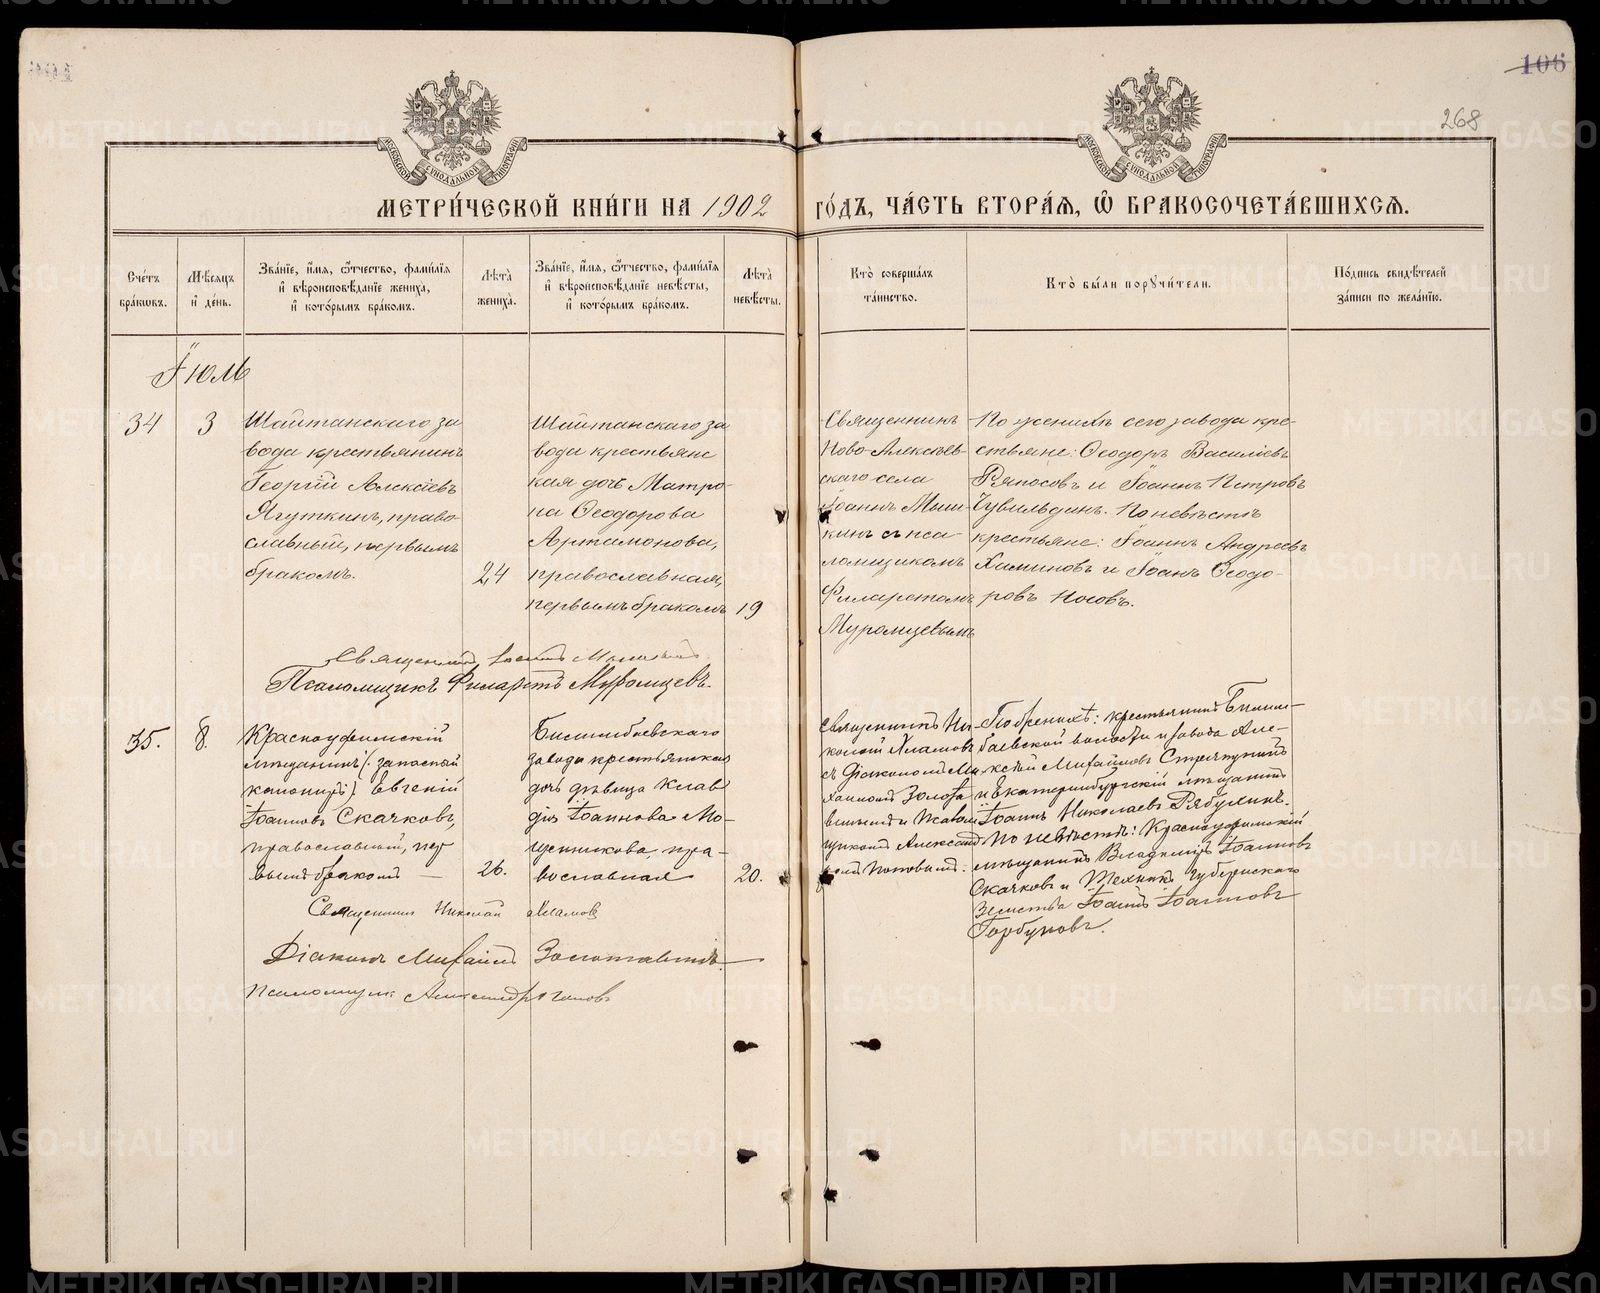 106
268
МОСКОВСКОЙ СѴНОДАЛЬНОЙ ТИПОГРАФІИ
МОСКОВСКОЙ СѴНОДАЛЬНОЙ ТИПОГРАФІИ
МЕТРИ́ЧЕСКОЙ КНИ́ГИ НА 1902 ГО́ДЪ, ЧА́СТЬ ВТОРА́Ѧ, Ѽ БРАКОСОЧЕТА́ВШИХСѦ.
Сче́тъ
бра́кѡвъ.
Мѣ́сѧцъ
и҆ де́нь.
Зва́нїе, и҆́мѧ, ѻ҆́тчество, фами́лїѧ
и҆ вѣроисповѣ́данїе жениха̀,
и҆ кото́рымъ бра́комъ.
Лѣ́та
жениха̀.
Зва́нїе, и҆́мѧ, ѻ҆́тчество, фами́лїѧ
и҆ вѣроисповѣ́данїе невѣ́сты,
и҆ кото́рымъ бра́комъ.
Лѣ́та
невѣ́сты.
Кто̀ соверша́лъ
та́инство.
Кто̀ бы́ли порꙋчи́тели.
По́дпись свидѣ́телей
за́писи по жела́нїю.
Іюль
34
3
Шайтанскаго за
вода крестьянинъ
Георгій Алексіевъ
Ягуткинъ, право-
славный, первымъ
бракомъ.
24
Шайтанскаго за
вода крестьянс
кая дочь Матро-
на Ѳеодорова
Артамонова,
православная,
первымъ бракомъ
19
Священникъ
Ново-Алексѣев-
скаго села
Іоаннъ Мыш-
кинъ съ пса-
ломщикомъ
Филаретомъ
Муромцевымъ
По женихѣ сего завода кре-
стьяне: Ѳеодоръ Василіевъ
Ряпосовъ и Іоаннъ Петровъ
Чувильдинъ. По невѣстѣ
крестьяне: Іоаннъ Андреевъ
Химиновъ и Іоанъ Ѳеодо-
ровъ Носовъ.
Священникъ Іоаннъ Мышкинъ
Псаломщикъ Филаретъ Муромцевъ.
35.
8.
Красноуфимскій
мѣщанинъ (: запасный
канониръ) Евгеній
Іоанновъ Скачковъ,
православный, пер
вымъ бракомъ —
26.
Билимбаевскаго
завода крестьянская
дочь дѣвица Клав
дія Іоаннова Мо-
щенникова, пра-
вославная
20.
Священникъ Ни-
колай Хламовъ
съ діакономъ Ми
хаиломъ Золота
винымъ и Псалом
щикомъ Александ
ромъ Поповымъ.
По женихѣ: крестьянинъ Билим-
баевской волости и завода Але-
ксѣй Михаиловъ Стряпунинъ
и Екатеринбургскій мѣщанинъ
Іоаннъ Николаевъ Рябухинъ.
По невѣстѣ: Красноуфимскій
мѣщанинъ Владиміръ Іоанновъ
Скачковъ и Техникъ Губернскаго
Земства Іоаннъ Іоанновъ
Горбуновъ.
Священникъ Николай Хламовъ
Діаконъ Михаилъ Золотавинъ.
Псаломщик Александръ Поповъ